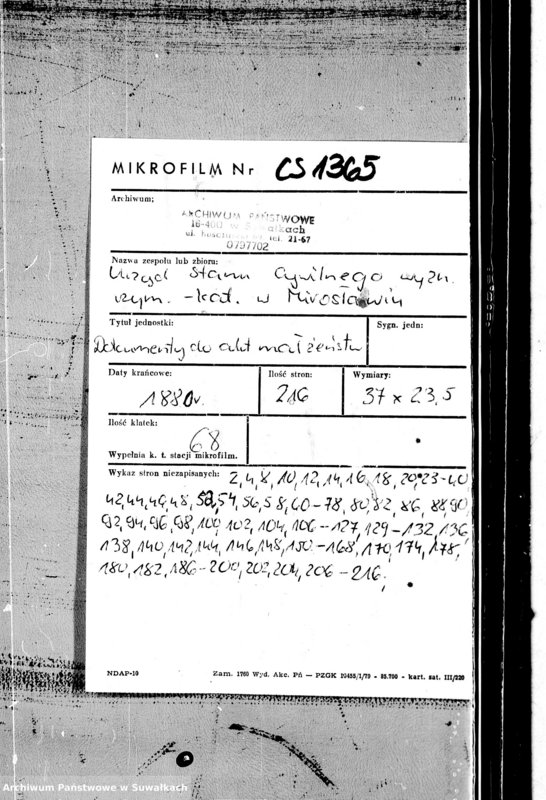 MIKROFILM Nr CS 1365
Archiwum:
ARCHIWUM PAŃSTWOWE
16-400 w Suwałkach
ul. tel. 21-67
0797702
Nazwa zespołu lub zbioru:
Urząd Stanu Cywilnego wyzn.
rzym.-kat. w Mirosławiu
Tytuł jednostki:
Sygn. jedn:
Dokumenty do akt małżeństw
Daty krańcowe:
Ilość stron:
Wymiary:
1880r.
216
37 x 23,5
Ilość klatek:
68
Wypełnia k. t. stacji mikrofilm.
Wykaz stron niezapisanych: 2,4,8,10,12,14,16,18,20,23-40
42,44,46,48,52,54,56,58,60-78,80,82,86,88,90,
92,94,96,98,100,102,104,106-127,129-132,136,
138,140,142,144,146,148,150-168,170,174,178,
180,182,186-200,202,204,206-216,
NDAP-10
Zam. 1760 Wyd. Akc. Pń — PZGK 19455/1/79 - 85.700 - kart. sat. III/220
Archiwum Państwowe w Suwałkach